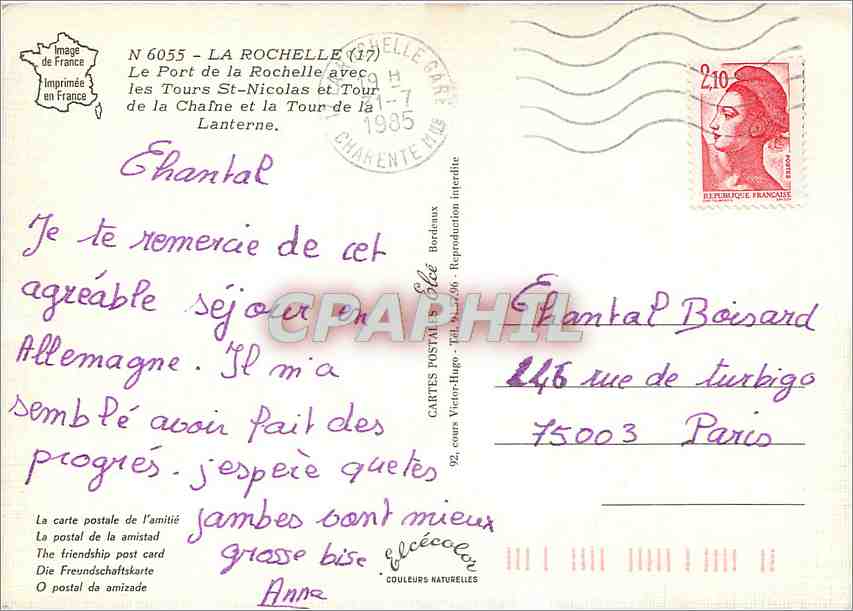 Image
de France
Imprimée
en France
N 6055 - LA ROCHELLE (17)
Le Port de la Rochelle avec
les Tours St-Nicolas et Tour
de la Chaîne et la Tour de la
Lanterne.
17 LA ROCHELLE GARE
19 H
31-7
1985
CHARENTE Mme
2,10
POSTES
REPUBLIQUE FRANÇAISE
Chantal
Je te remercie de cet
agréable séjour en
Allemagne. Il m'a
semblé avoir fait des
progrés. j'espère que tes
jambes vont mieux
grosse bise.
Anna
CPAPHIL
CARTES POSTALES Elcé Bordeaux
92, cours Victor-Hugo - Tél. 91.57.96 - Reproduction interdite
Chantal Boisard
rue de turbigo
75003 Paris
La carte postale de l'amitié
La postal de la amistad
The friendship post card
Die Freundschaftskarte
O postal da amizade
Elcécolor
COULEURS NATURELLES